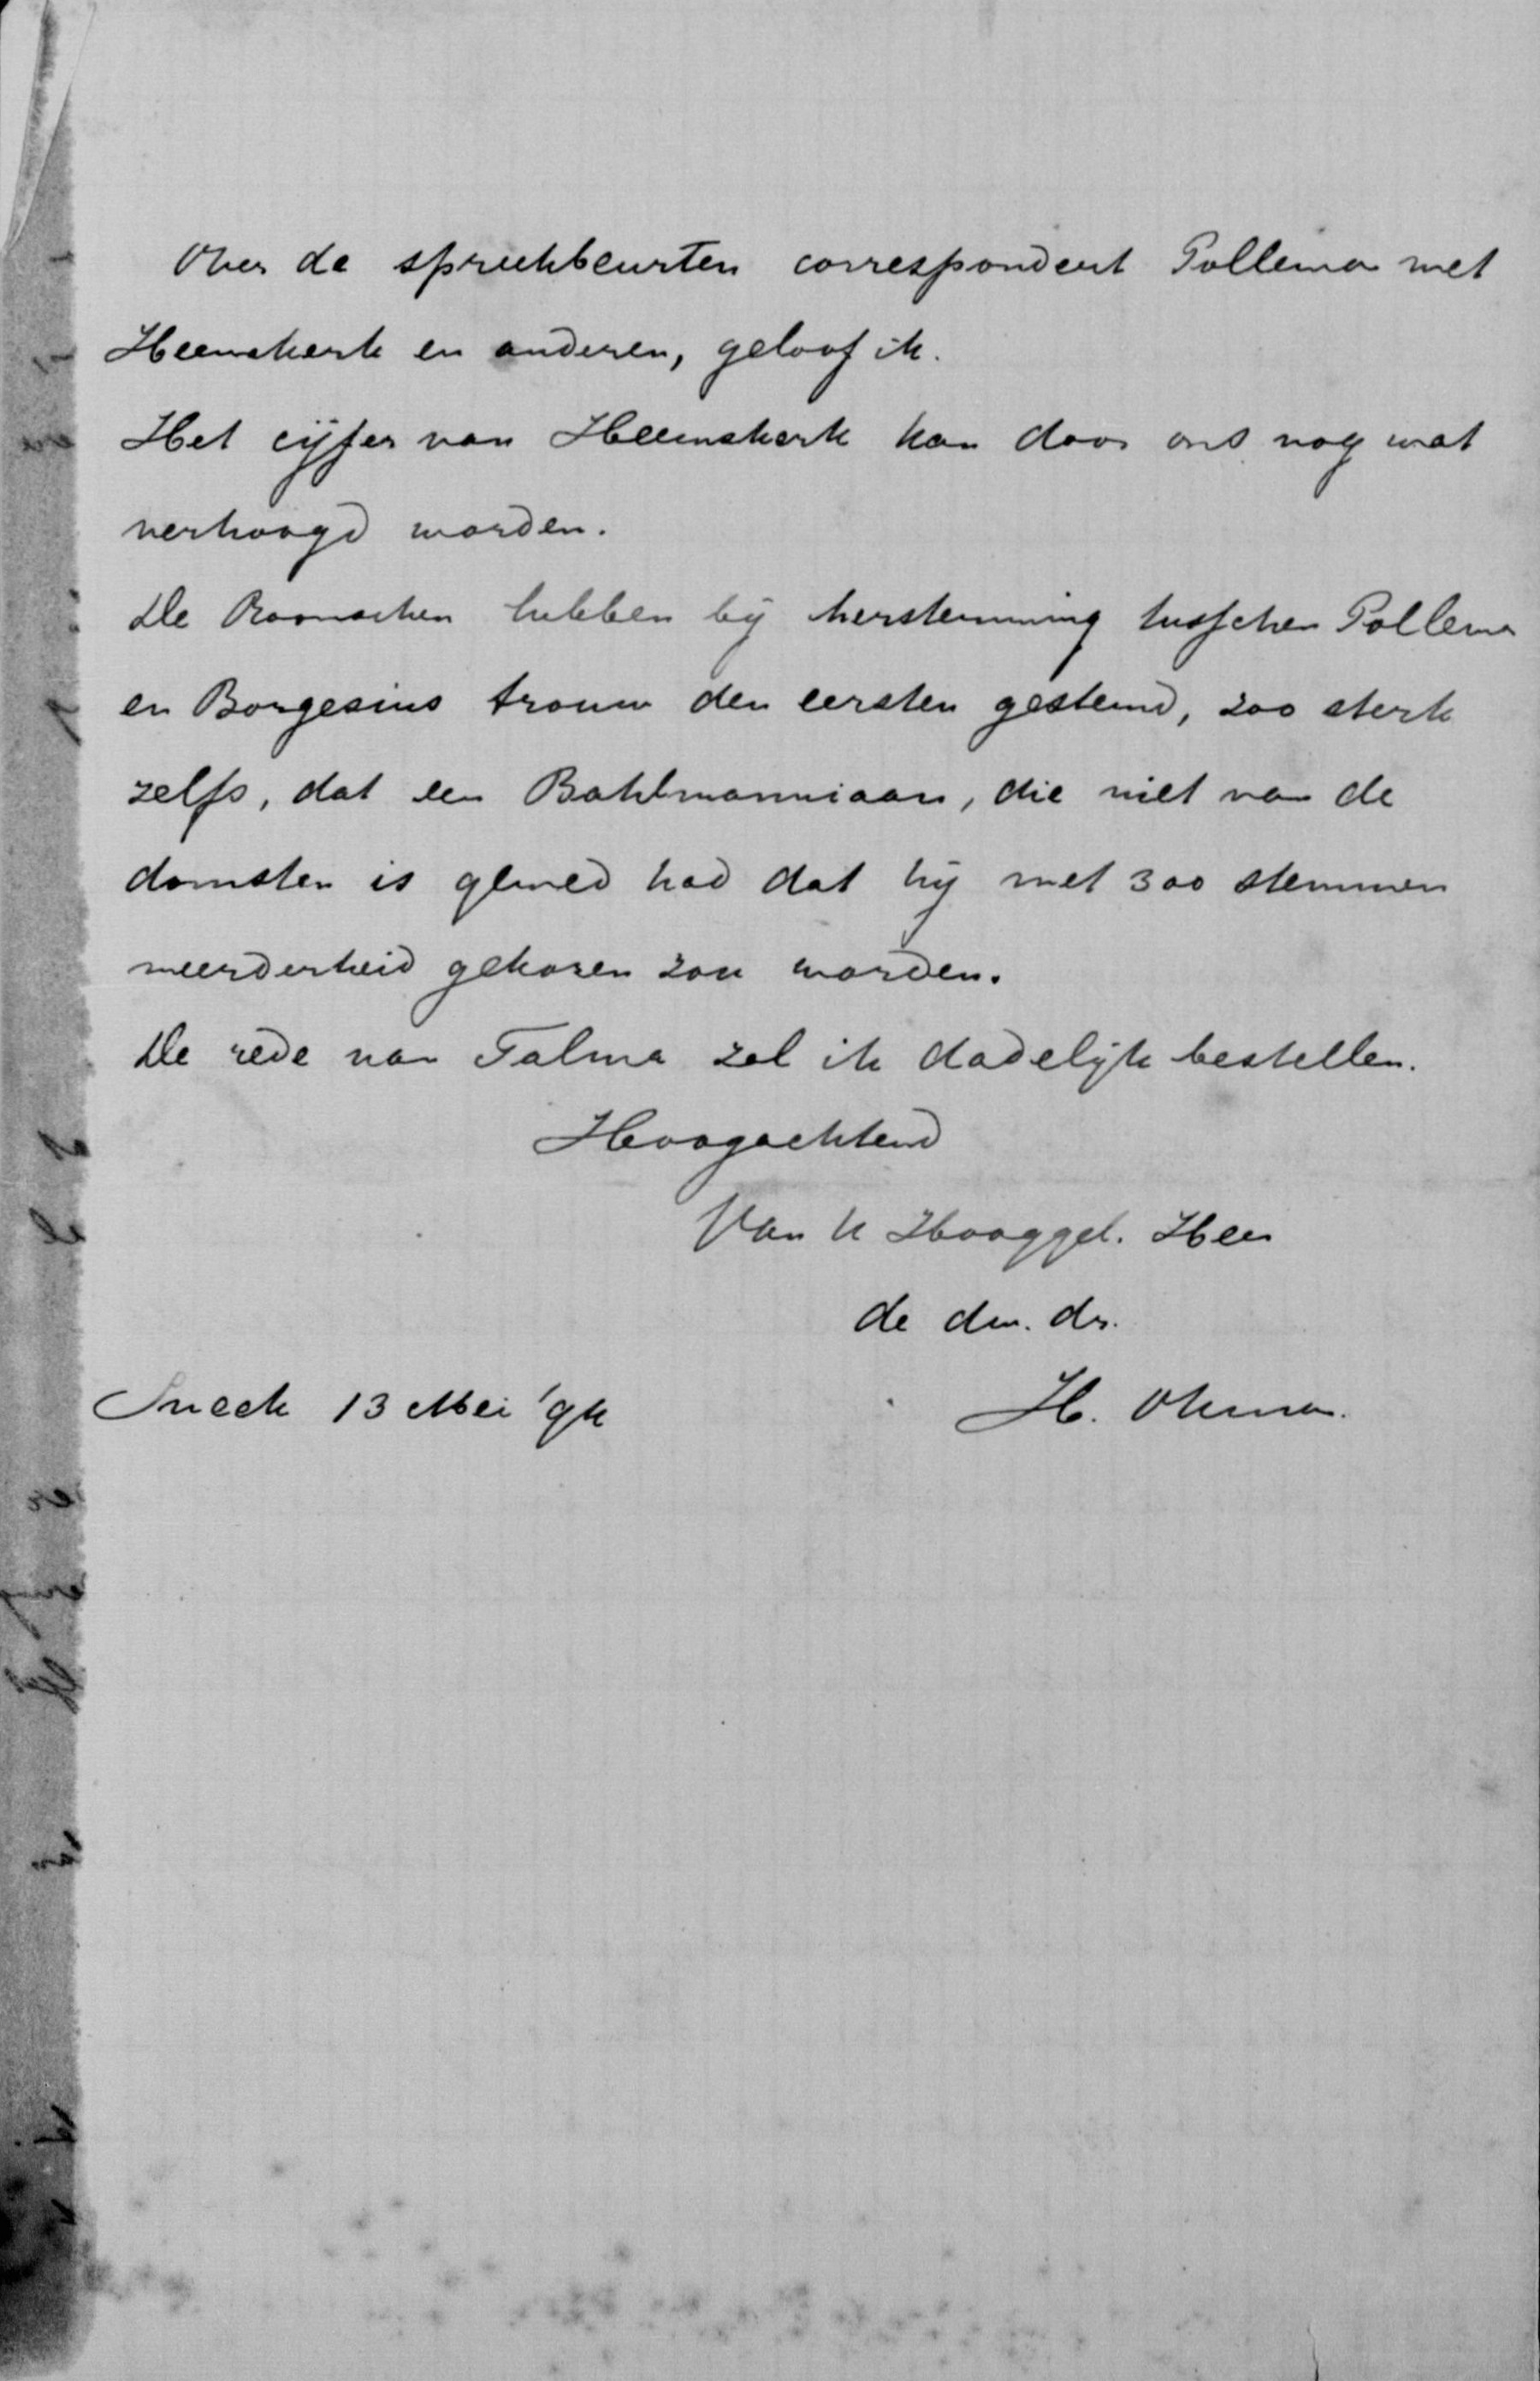 Over de spreekbeurten correspondeert Pollema met
Heemskerk en anderen, geloof ik.
Het cijfer van Heemskerk kan door ons nog wat
verhoogd worden.
De Roomschen hebben bij herstemming tusschen Pollema
en Borgesius trouw den eersten gestemd, zoo sterk
zelfs, dat een Bahlmanniaan, die niet van de
domsten is gewed had dat hij met 300 stemmen
meerderheid gekozen zou worden.
De rede van Talma zal ik dadelijk bestellen.
Hoogachtend
Van U Hooggel. Heer
de dw. dr.
Sneek 13 Mei '94
H. Okma.